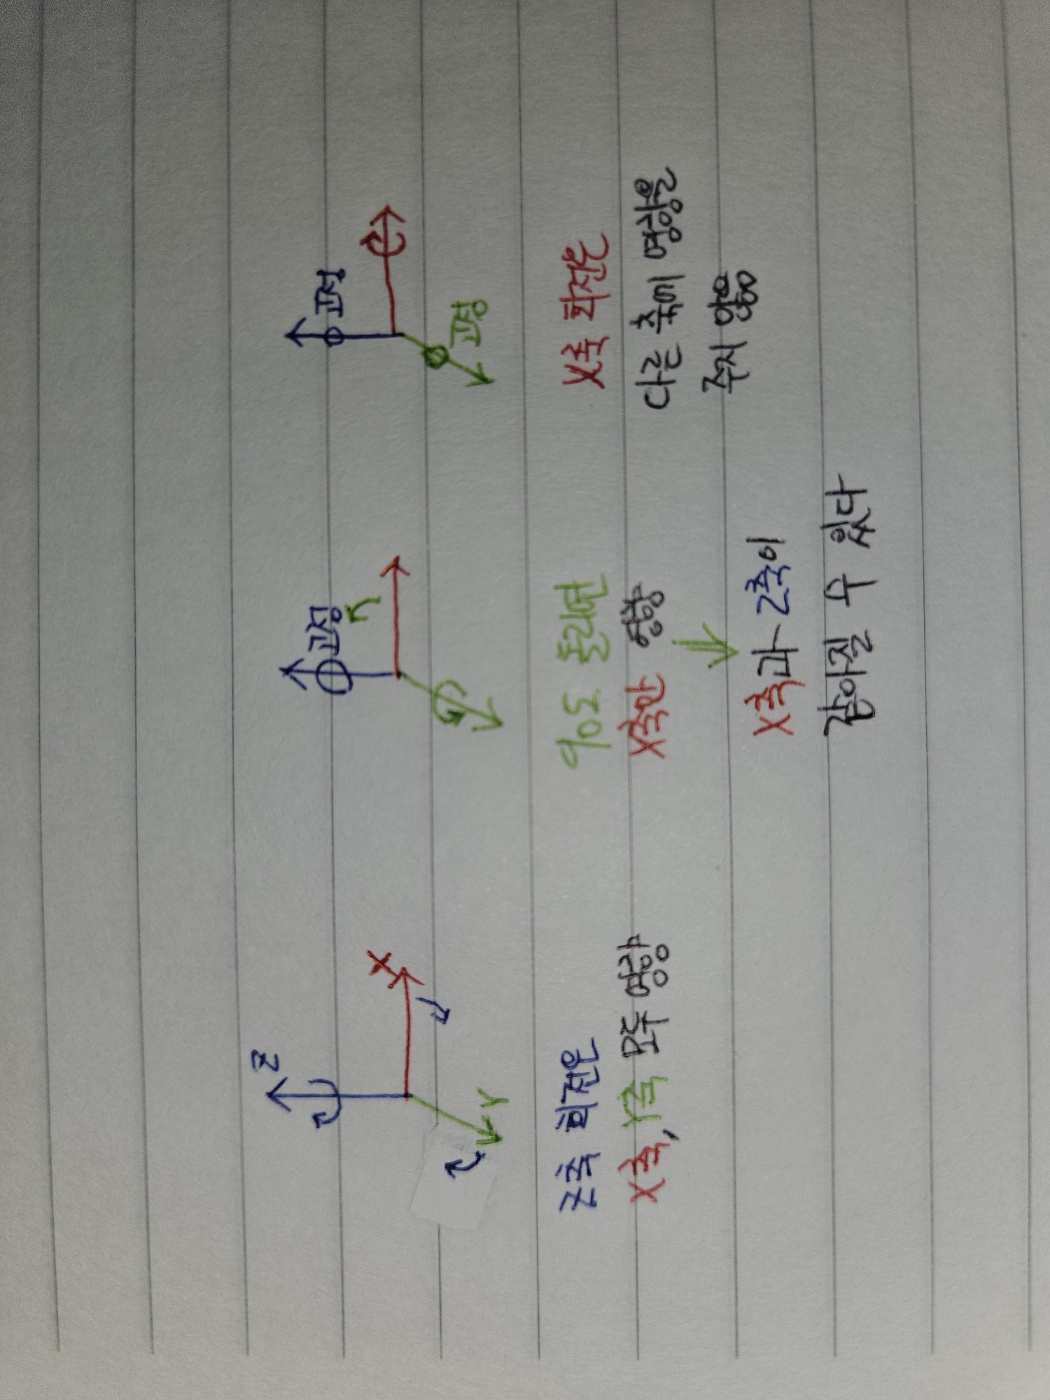 Z
X
Y
Z축 회전은
X축, Y축 모두 영향
고정
90도 돌리면
X축만 영향
X축과 Z축이
같아질 수 있다
고정
고정
X축 회전은
다른 축에 영향을
주지 않음